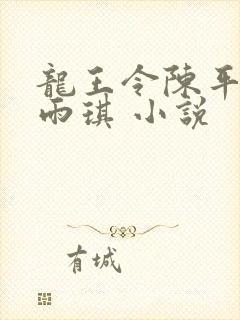 龍王令陳平
雨琪 小說
有城